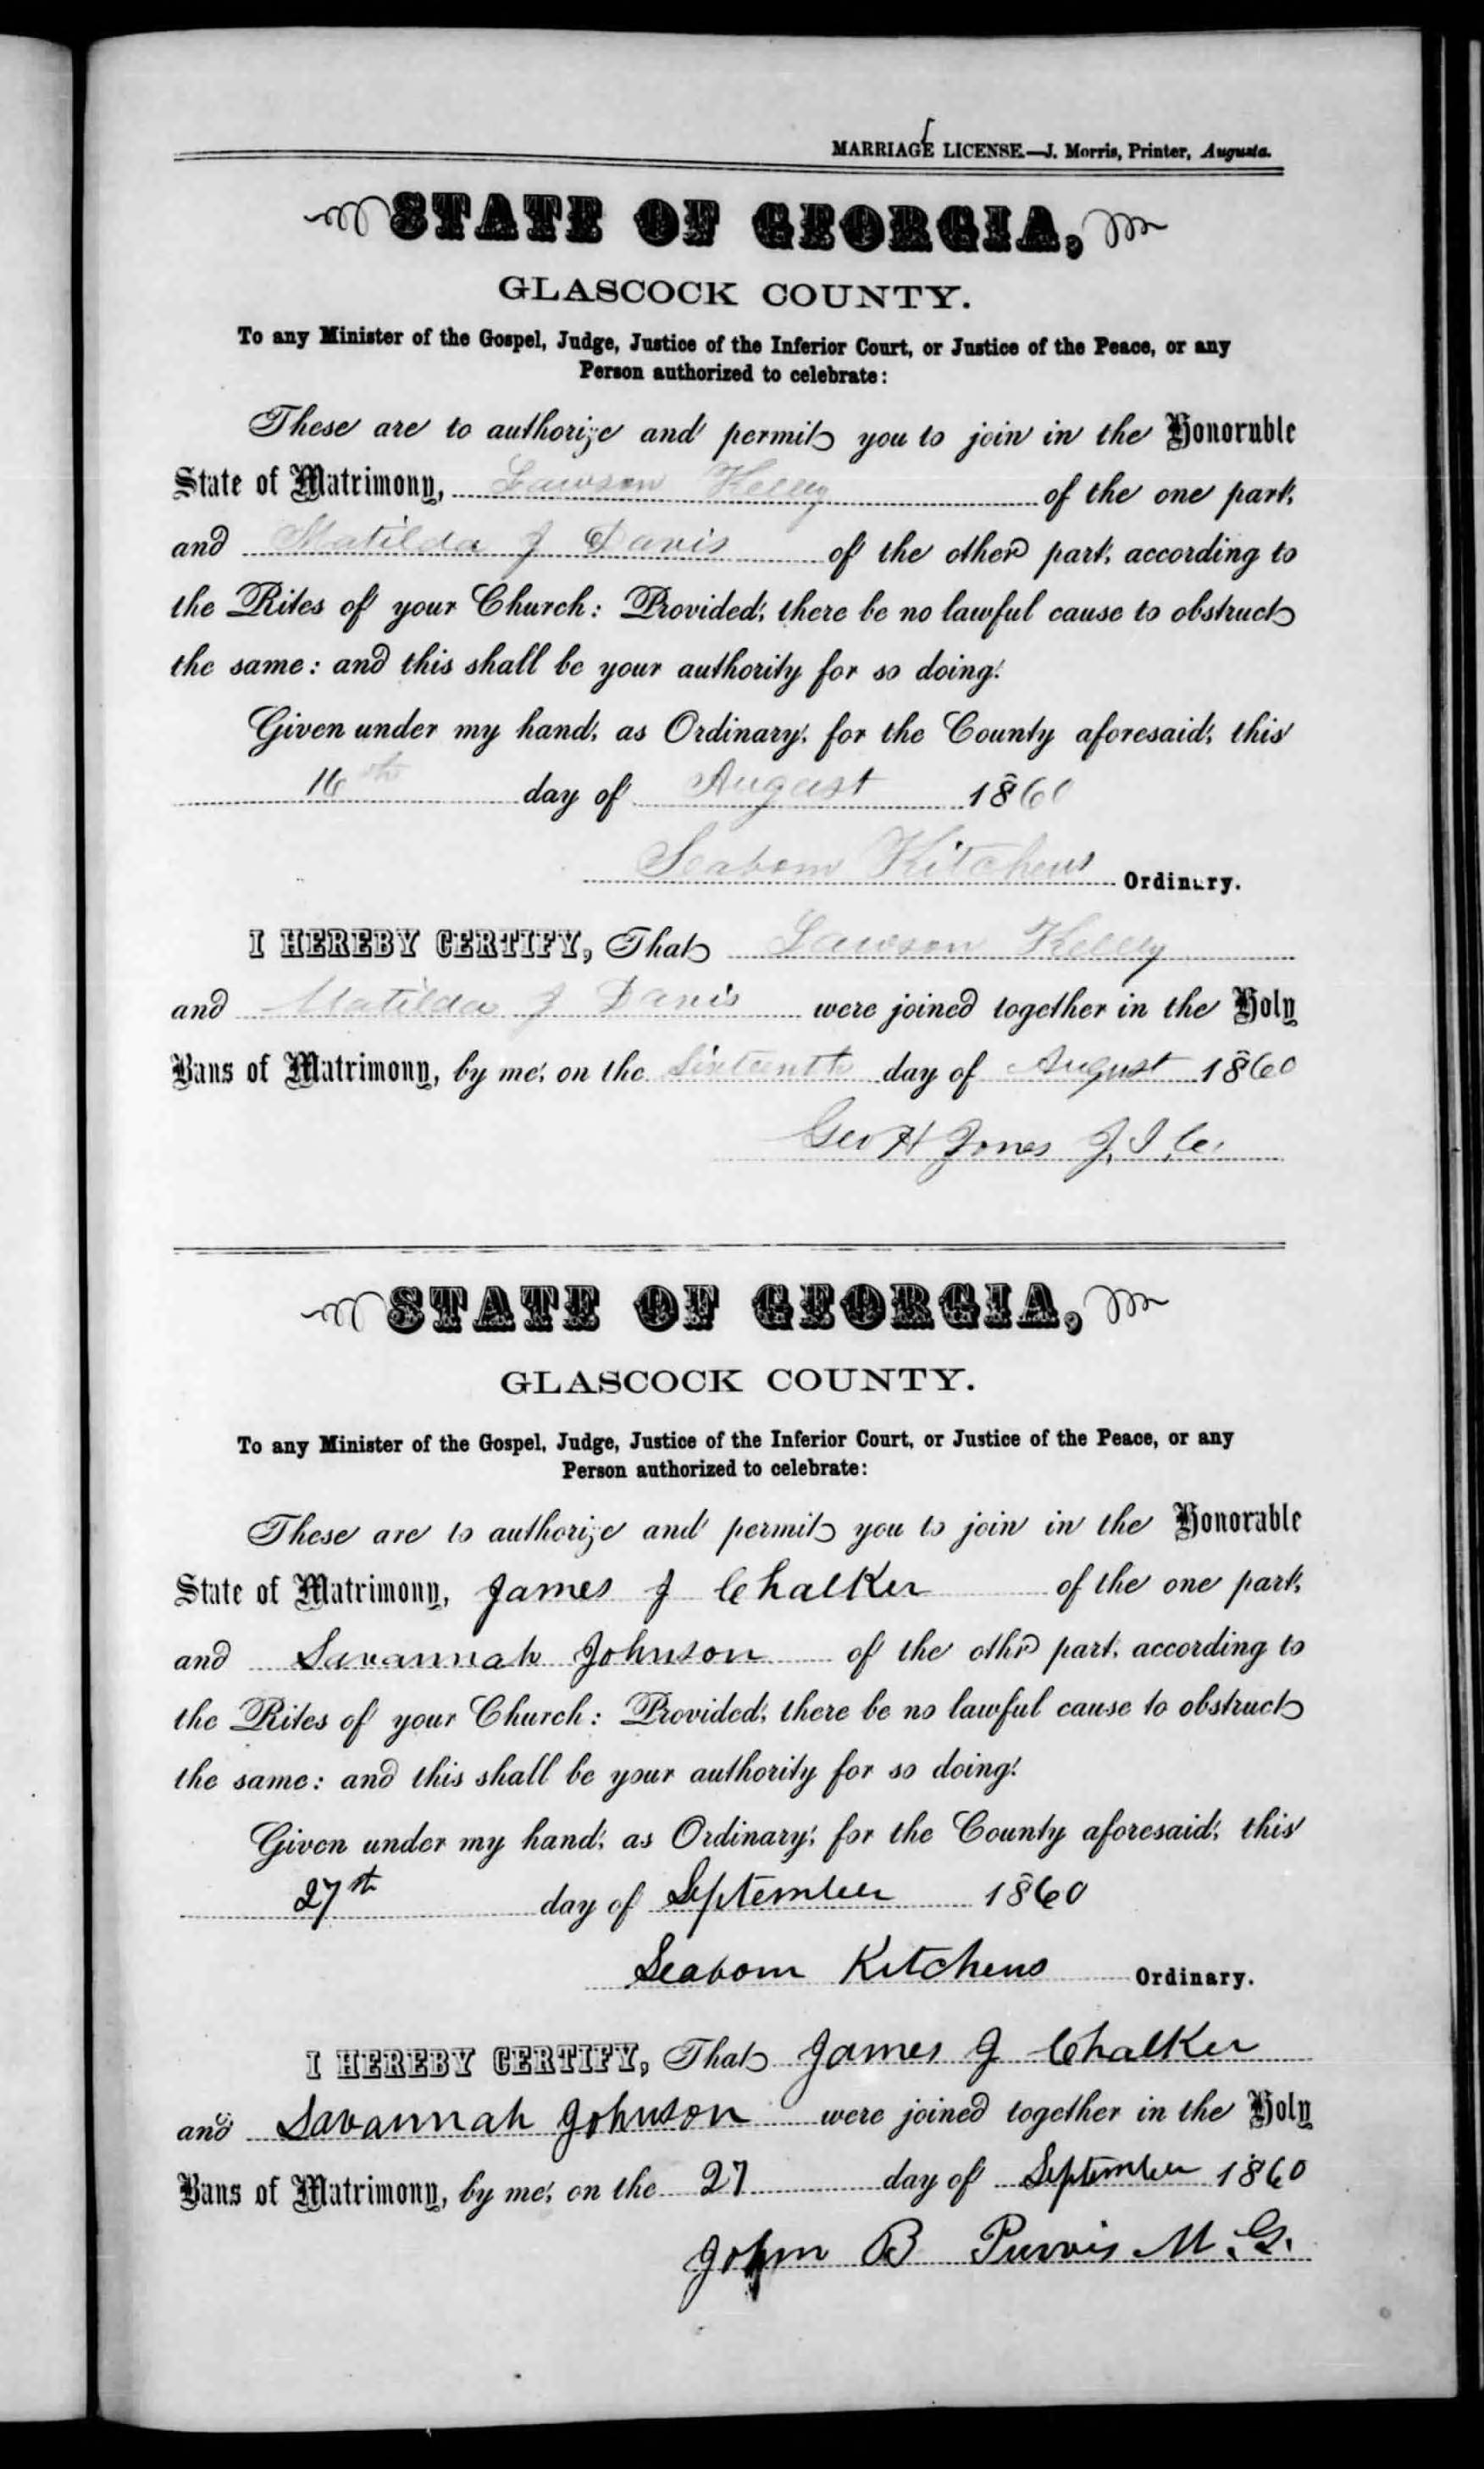 MARRIAGE LICENSE.—J. Morris, Printer, Augusta.
STATE OF GEORGIA,
GLASCOCK COUNTY.
To any Minister of the Gospel, Judge, Justice of the Inferior Court, or Justice of the Peace, or any
Person authorized to celebrate:
These are to authorize and permit you to join in the Honorable
State of Matrimony, Lawson Kelly of the one part,
and Matilda J Davis of the other part, according to
the Rites of your Church: Provided, there be no lawful cause to obstruct
the same: and this shall be your authority for so doing.
Given under my hand, as Ordinary, for the County aforesaid, this
16th day of August 1860
Seaborn Kitchens Ordinary.
I HEREBY CERTIFY, That Lawson Kelly
and Matilda J Davis were joined together in the Holy
Bans of Matrimony, by me, on the Sixteenth day of August 1860
Geo H Jones J. I. C.
STATE OF GEORGIA,
GLASCOCK COUNTY.
To any Minister of the Gospel, Judge, Justice of the Inferior Court, or Justice of the Peace, or any
Person authorized to celebrate:
These are to authorize and permit you to join in the Honorable
State of Matrimony, James J Chalker of the one part,
and Savannah Johnson of the othr part, according to
the Rites of your Church: Provided, there be no lawful cause to obstruct
the same: and this shall be your authority for so doing.
Given under my hand, as Ordinary, for the County aforesaid, this
27st day of September 1860
Seaborn Kitchens Ordinary.
I HEREBY CERTIFY, That James J Chalker
and Savannah Johnson were joined together in the Holy
Bans of Matrimony, by me, on the 27 day of September 1860
John B Purvis M. G.